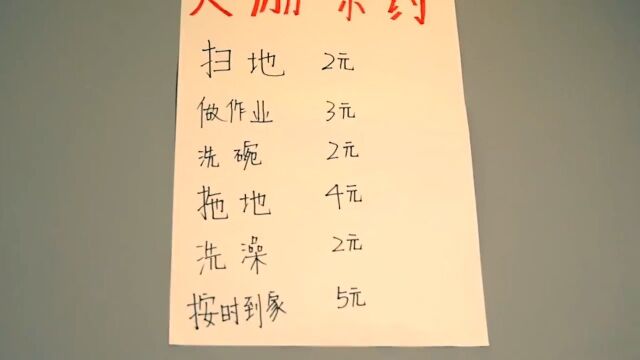 条约
扫地 2元
做作业 3元
洗碗 2元
拖地 4元
洗澡 2元
按时到家 5元